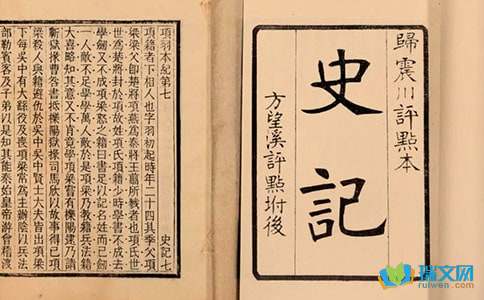 歸震川評點本
史記
方望溪評點坿後
項羽本紀第七 史記七
項籍者下相人也字羽初起時年二十四其季父項
梁梁父即楚將項燕為秦將王翦所戮者也項氏世
世為楚將封於項故姓項氏項籍少時學書不成去
學劒又不成項梁怒之籍曰書足以記名姓而已劒
一人敵不足學學萬人敵於是項梁乃教籍兵法籍
大喜略知其意又不肯竟學項梁嘗有櫟陽逮乃請
蘄獄掾曹咎書抵櫟陽獄掾司馬欣以故事得已項
梁殺人與籍避仇於吳中吳中賢士大夫皆出項梁
下每吳中有大繇役及喪項梁常為主辦陰以兵法
部勒賓客及子弟以是知其能秦始皇帝游會稽渡
瑞文网
ruiwen.com